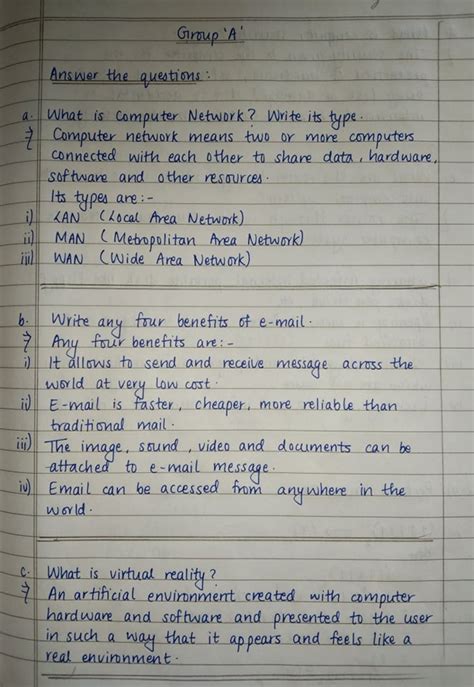 Group 'A'
Answer the questions :
a. What is Computer Network? Write its type.
⇒ Computer network means two or more computers
connected with each other to share data, hardware,
software and other resources.
Its types are:-
i) LAN (Local Area Network)
ii) MAN (Metropolitan Area Network)
iii) WAN (Wide Area Network)
b. Write any four benefits of e-mail.
⇒ Any four benefits are:-
i) It allows to send and receive message across the
world at very low cost.
ii) E-mail is faster, cheaper, more reliable than
traditional mail.
iii) The image, sound, video and documents can be
attached to e-mail message.
iv) Email can be accessed from anywhere in the
world.
c. What is virtual reality?
⇒ An artificial environment created with computer
hardware and software and presented to the user
in such a way that it appears and feels like a
real environment.